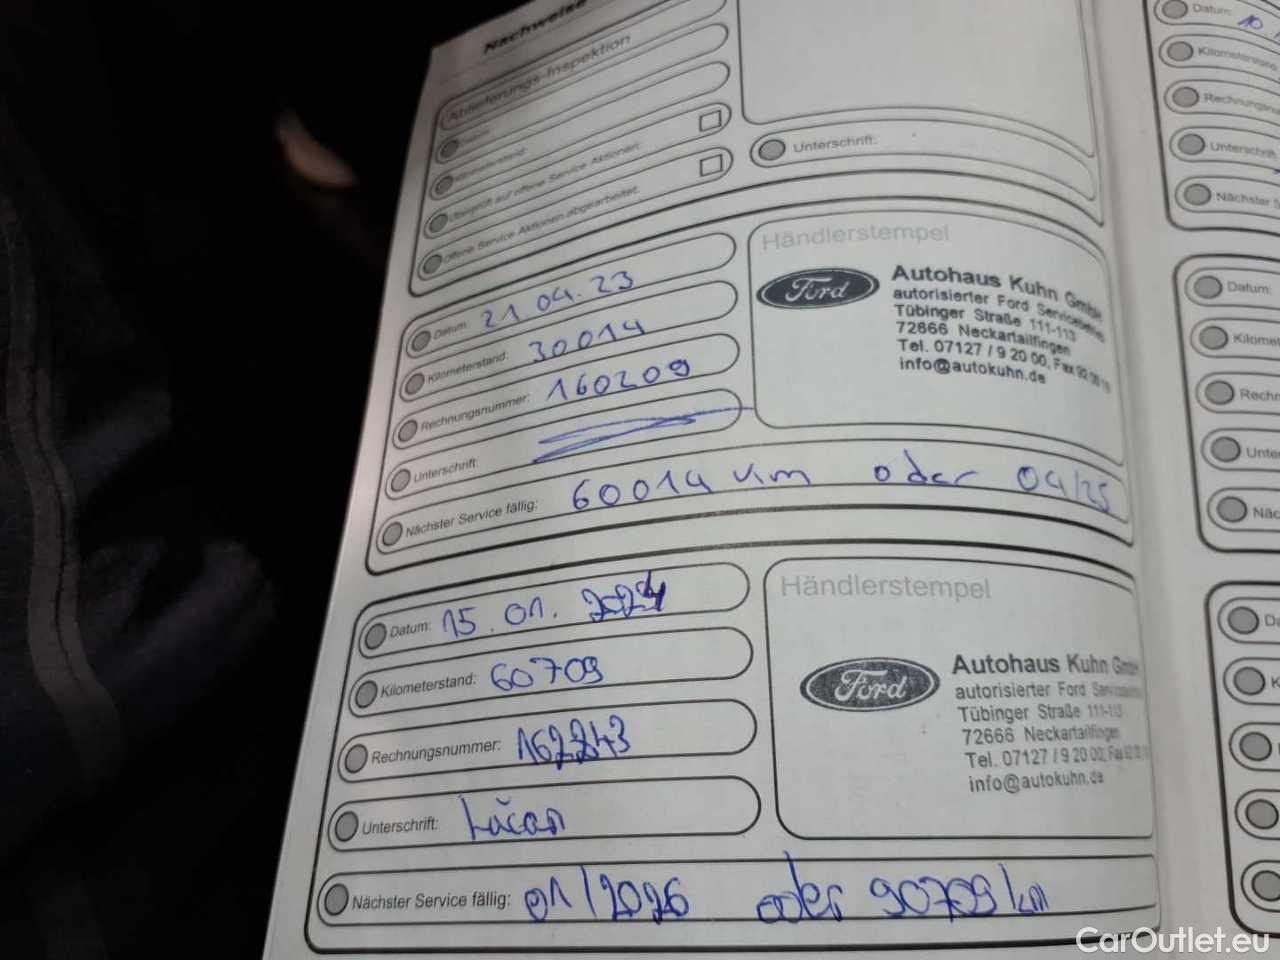 Nachweise
Ablieferungs-Inspektion
Datum:
Kilometerstand:
Überprüft auf offene Service Aktionen:
Offene Service Aktionen abgearbeitet:
Unterschrift:
Datum: 21 04. 23
Kilometerstand: 30014
Rechnungsnummer: 160209
Unterschrift:
Nächster Service fällig: 60014 km oder 04/25
Händlerstempel
Ford
Autohaus Kuhn GmbH
autorisierter Ford Servicebetrieb
Tübinger Straße 111-113
72666 Neckartailfingen
Tel. 07127 / 9 20 00, Fax 92 00
info@autokuhn.de
Datum: 15. 01. 2024
Kilometerstand: 60709
Rechnungsnummer: 162243
Unterschrift:
Nächster Service fällig: 01/2026 oder 90709 km
Händlerstempel
Ford
Autohaus Kuhn GmbH
autorisierter Ford Servicebetrieb
Tübinger Straße 111-113
72666 Neckartailfingen
Tel. 07127 / 9 20 00, Fax 92 00
info@autokuhn.de
Datum: 10
Kilometerstand
Rechnungsnu
Unterschrift
Nächster S
Datum:
Kilomet
Rechn
Unte
Näc
Da
K
CarOutlet.eu